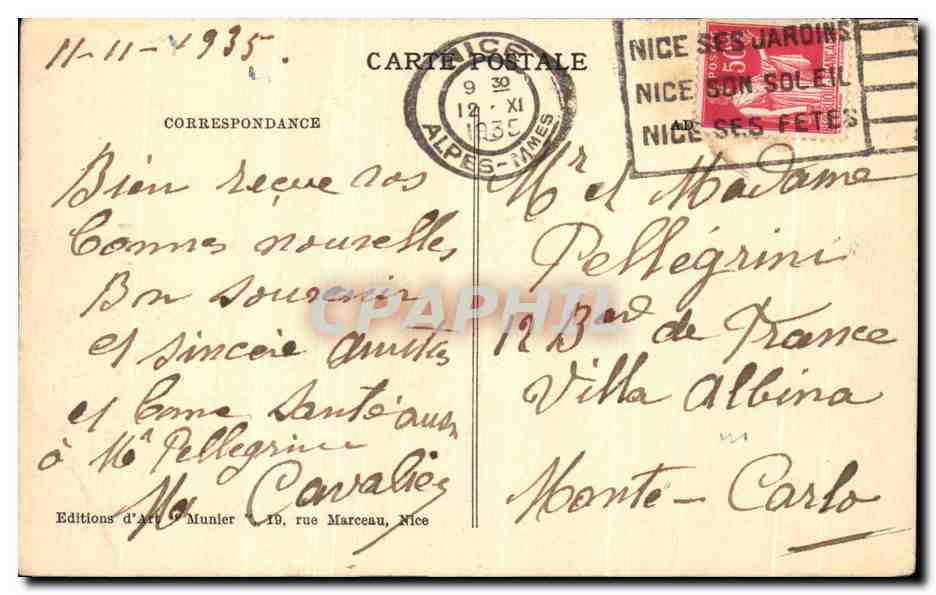 11-11-1935.
CARTE POSTALE
NICE
9 30
12 · XI
1935
ALPES-MMES
NICE SES JARDINS
NICE SON SOLEIL
NICE SES FETES
POSTES
50c
CORRESPONDANCE
Bien reçue vos
bonnes nouvelles
Bon souvenir
et sincère amitiés
et bonne santé aussi
à Mr Pellegrini
Cavalier
Mr et Madame
Pellégrini
12 Bard de France
Villa Albina
Monte-Carlo
Editions d'Art "Munier" 19, rue Marceau, Nice
CPAPHIL